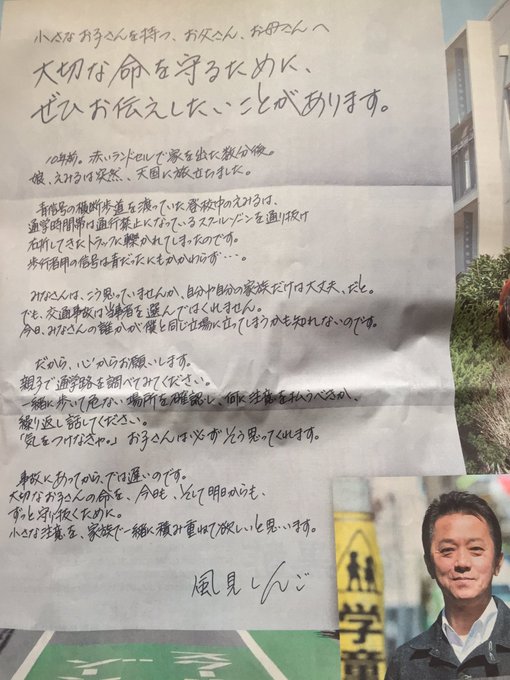 小さなお子さんを持つ、お父さん、お母さんへ
大切な命を守るために、
ぜひお伝えしたいことがあります。
10年前。赤いランドセルで家を出た数分後。
娘、えみるは突然、天国に旅立ちました。
青信号の横断歩道を渡っていた登校中のえみるは、
通学時間帯は通行禁止になっているスクールゾーンを通り抜け
右折してきたトラックに轢かれてしまったのです。
歩行者用の信号は青だったにもかかわらず…。
みなさんは、こう思っていませんか、自分や自分の家族だけは大丈夫、だと。
でも、交通事故は当事者を選んではくれません。
今日、みなさんの誰かが僕と同じ立場に立ってしまうかも知れないのです。
だから、心からお願いします。
親子で通学路を調べてみてください。
一緒に歩いて危ない場所を確認し、何に注意を払うべきか、
繰り返し話してください。
「気をつけなきゃ。」お子さんは必ずそう思ってくれます。
事故にあってから、では遅いのです。
大切なお子さんの命を、今日も、そして明日からも、
ずっと守り抜くために。
小さな注意を、家族で一緒に積み重ねて欲しいと思います。
風見しんご
学童